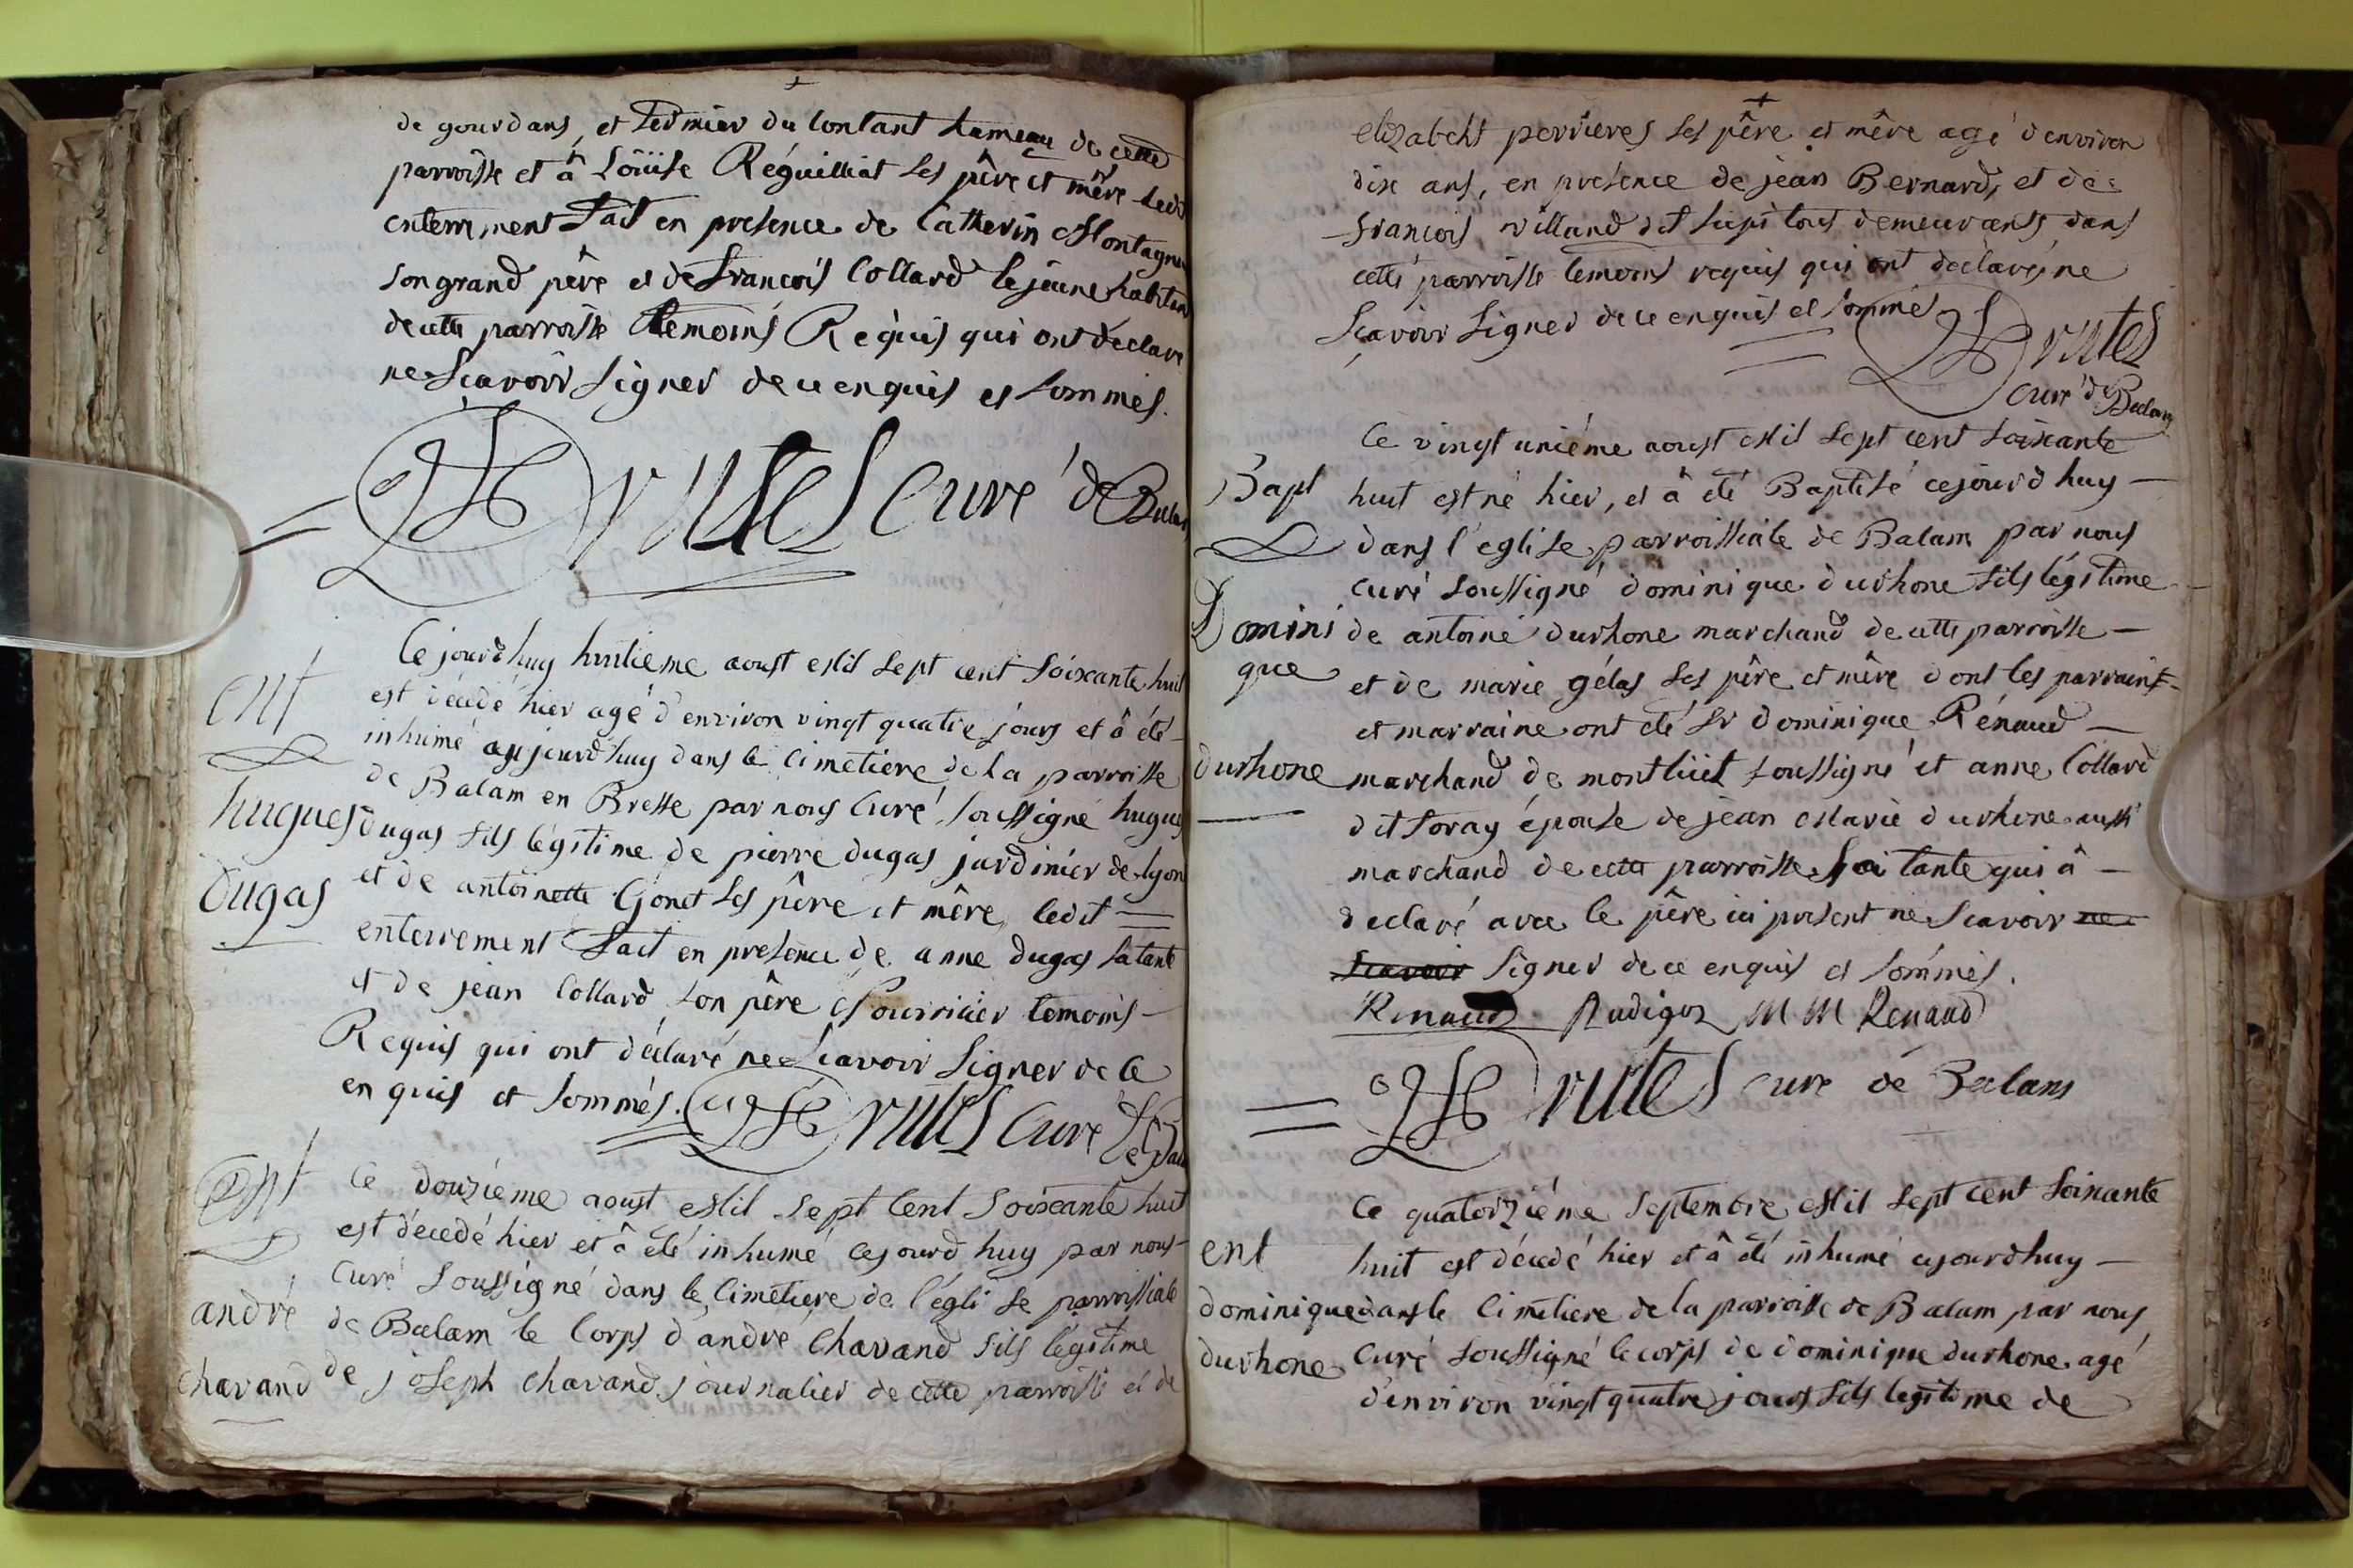 de gourdans, et fermier du Contant hameau de cette
parroisse et â Loüise Réguilliat ses pêre et mêre ledt
enterrement fait en presence de Catherin Montagne
son grand pêre et de francois Collard le jeune habitan
de cette parroisse temoins Requis qui ont declare
ne Scavoir signer de ce enquis et sommés.
Brutes Curé de Balan
Ce jourdhuy huitieme aoust Mil sept cent soixante huit
ent
est décédé hier agé d'environ vingt quatre jours et â été
inhumé aujourdhuy dans le Cimetiere de la parroisse
de Balam en Bresse par nous Curé soussigné hugues
hugues
dugas fils légitime de pierre dugas jardinier de lyon
dugas
et de antoinette Gonet ses pêre et mêre, ledit
enterrement fait en presence de anne dugas sa tante
et de jean Collard son pêre Nourricier temoins
Requis qui ont déclaré ne Scavoir signer de Ce
enquis et sommés. Brutes Curé de Bala
Ent
Ce douziéme aoust Mil sept Cent soixante huit
est décedé hier et â été inhumé cejourd huy par nous
Curé soussigné dans le Cimetiere de l'église parroissiale
andré
de Balam le Corps d'andré Chavand fils légitime
chavand
de joseph chavand journalier de cette parroisse et de
elizabeht perrieres ses pêre et mêre agé d'environ
dix ans, en presence de jean Bernard, et de
francois villand dit tous demeurants dans
cette parroisse temoins requis qui ont déclaré, ne
Scavoir signer de ce enquis et sommé
Brutes
Curé de Balam
Ce vingt uniéme aoust Mil sept cent soixante
Bapt
huit est né hier, et â été Baptisé cejourd huy
dans l'eglise parroissiale de Balam par nous
curé soussigné dominique durhone fils légitime
Domini
de antoine durhone marchand de cette parroisse
que
et de marie gélas ses pêre et mêre dont les parrains
et marraine ont été sr dominique Rénaud
durhone
marchand de montlüel soussigné et anne Collard
dit foray épouse de jean Marie durhone aussi
marchand de cette parroisse sa tante qui â
declaré avec le pêre ici present ne Scavoir ne
Scavoir signer de ce enquis et sommés.
Renaud Rudigoz M M Renaud
Brutes cure de Balam
Ce quatorziéme septembre Mil sept cent soixante
ent
huit est décedé hier et â été inhumé cejourdhuy
dominique
dans le Cimetiere de la parroisse de Balam par nous
durhone
Curé soussigné le corps de dominique durhone agé
d'environ vingt quatre jours fils legitime de